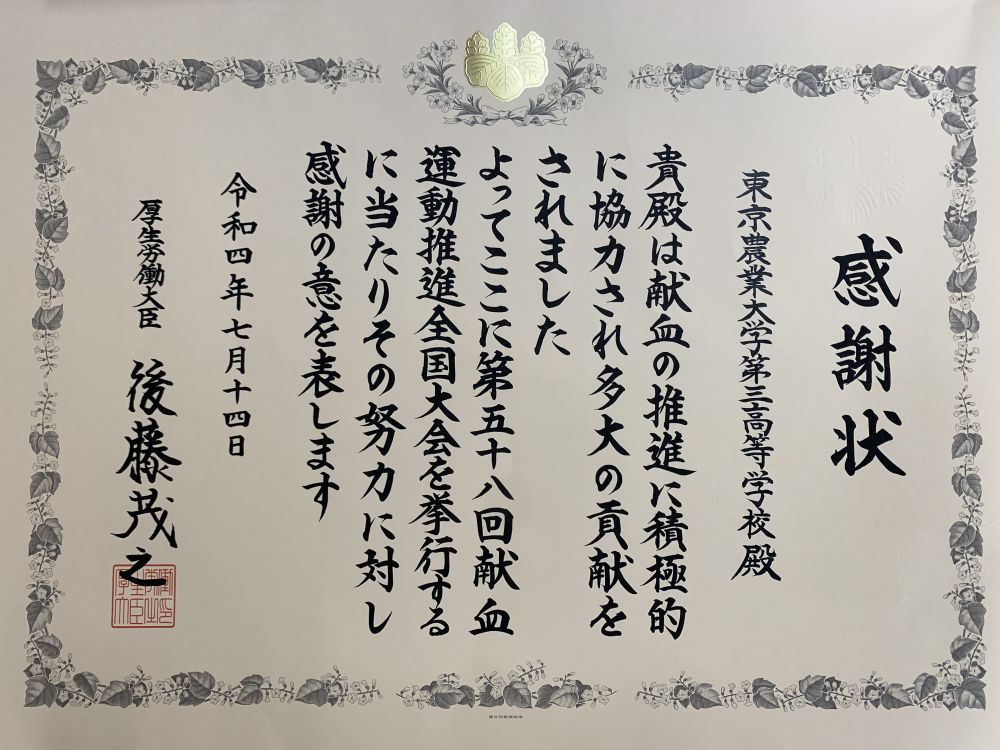 感謝状
東京農業大学第三高等学校殿
貴殿は献血の推進に積極的
に協力され多大の貢献を
されました
よってここに第五十八回献血
運動推進全国大会を挙行する
に当たりその努力に対し
感謝の意を表します
令和四年七月十四日
厚生労働大臣 後藤茂之